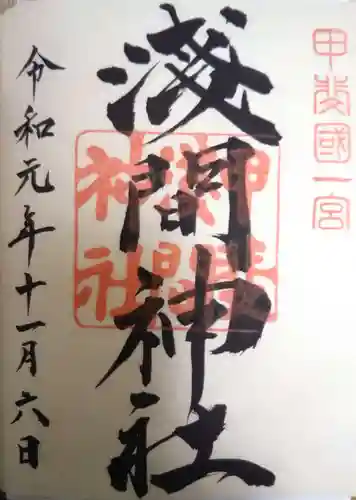 甲斐國一宮
淺間神社
淺間神社
令和元年十一月六日